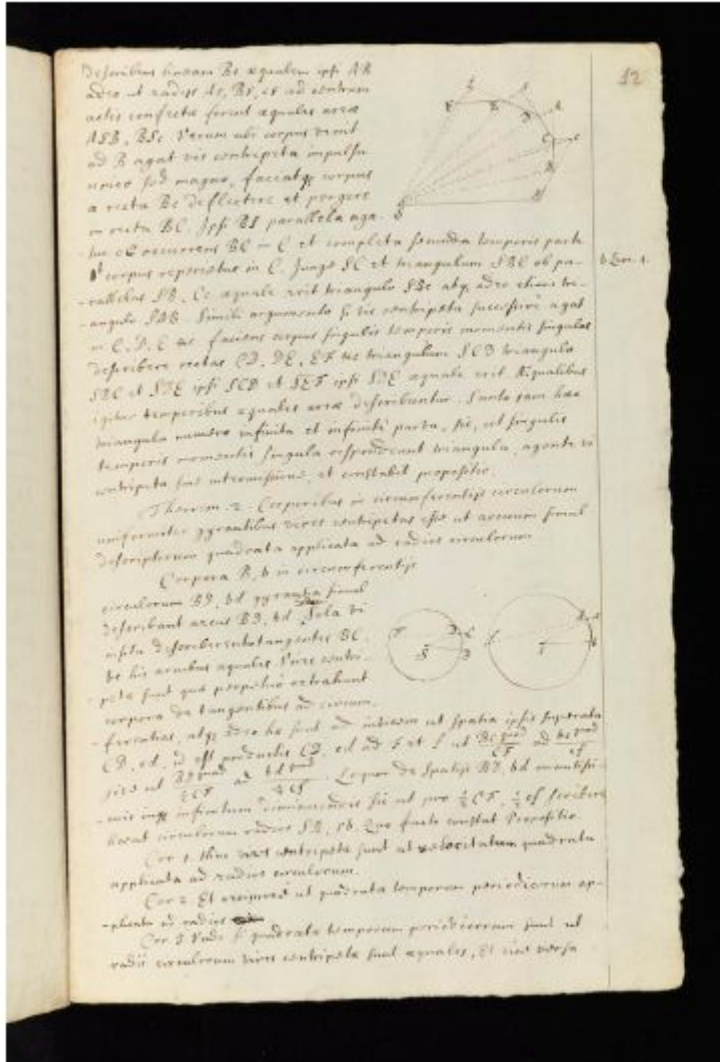 12
describens lineam Bc æqualem ipsi AB
adeo ut radiis AS, BS, cS ad centrum
actis confectæ forent æquales areæ
ASB, BSc. Verum ubi corpus venit
ad B agat vis centripeta impulsu
unico sed magno, faciatq corpus
a recta Bc deflectere et pergere
in recta BC. Ipsi BS parallela aga-
tur cC occurrens BC in C et completa secunda temporis parte
corpus reperietur in C. Junge SC et triangulum SBC ob pa-
-rallelas SB, Cc æquale erit triangulo SBc atq adeo etiam tri-
-angulo SAB. Simili argumento si vis centripeta successive agat
in C, D, E &c faciens corpus singulis temporis momentis singulas
describere rectas CD, DE, EF &c triangulum SCD triangulo
SBC et SDE ipsi SCD et SEF ipsi SDE æquale erit. Æqualibus
igitur temporibus æquales areæ describuntur. Sunto jam hæc
triangula numero infinita et infinite parva, sic, ut singulis
temporis momentis singula respondeant triangula, agente vi
centripeta sine intermissione, et constabit propositio.
Theorem. 2. Corporibus in circumferentijs circulorum
uniformiter gyrantibus vires centripetas esse ut arcuum simul
descriptorum quadrata applicata ad radios circulorum.
Corpora B, b in circumferentijs
circulorum BD, bd gyrantia simul
describant arcus BD, bd. Sola vi
insita describerent tangentes BC,
bc his arcubus æquales. Vires centri-
petæ sunt quæ perpetuo retrahunt
corpora de tangentibus ad circum-
-ferentias, atq adeo hæ sunt ad invicem ut spatia ipsis superata
CD, cd, id est productis CD, cd ad F et f ut BC quad / CF ad bc quad / cf
sive ut BD quad / ½CF ad bd quad / ½cf. Loquor de spatijs BD, bd minutissi-
-mis inq infinitum diminuendis sic ut pro ½CF, ½cf scribere
liceat circulorum radios SB, sb. Quo facto constat Propositio.
Cor 1. Hinc vires centripetæ sunt ut velocitatum quadrata
applicata ad radios circulorum.
Cor 2 Et reciproce ut quadrata temporum periodicorum ap-
-plicata ad radios
Cor 3 Unde si quadrata temporum periodicorum sunt ut
radii circulorum vires centripetæ sunt æquales, Et vice versa